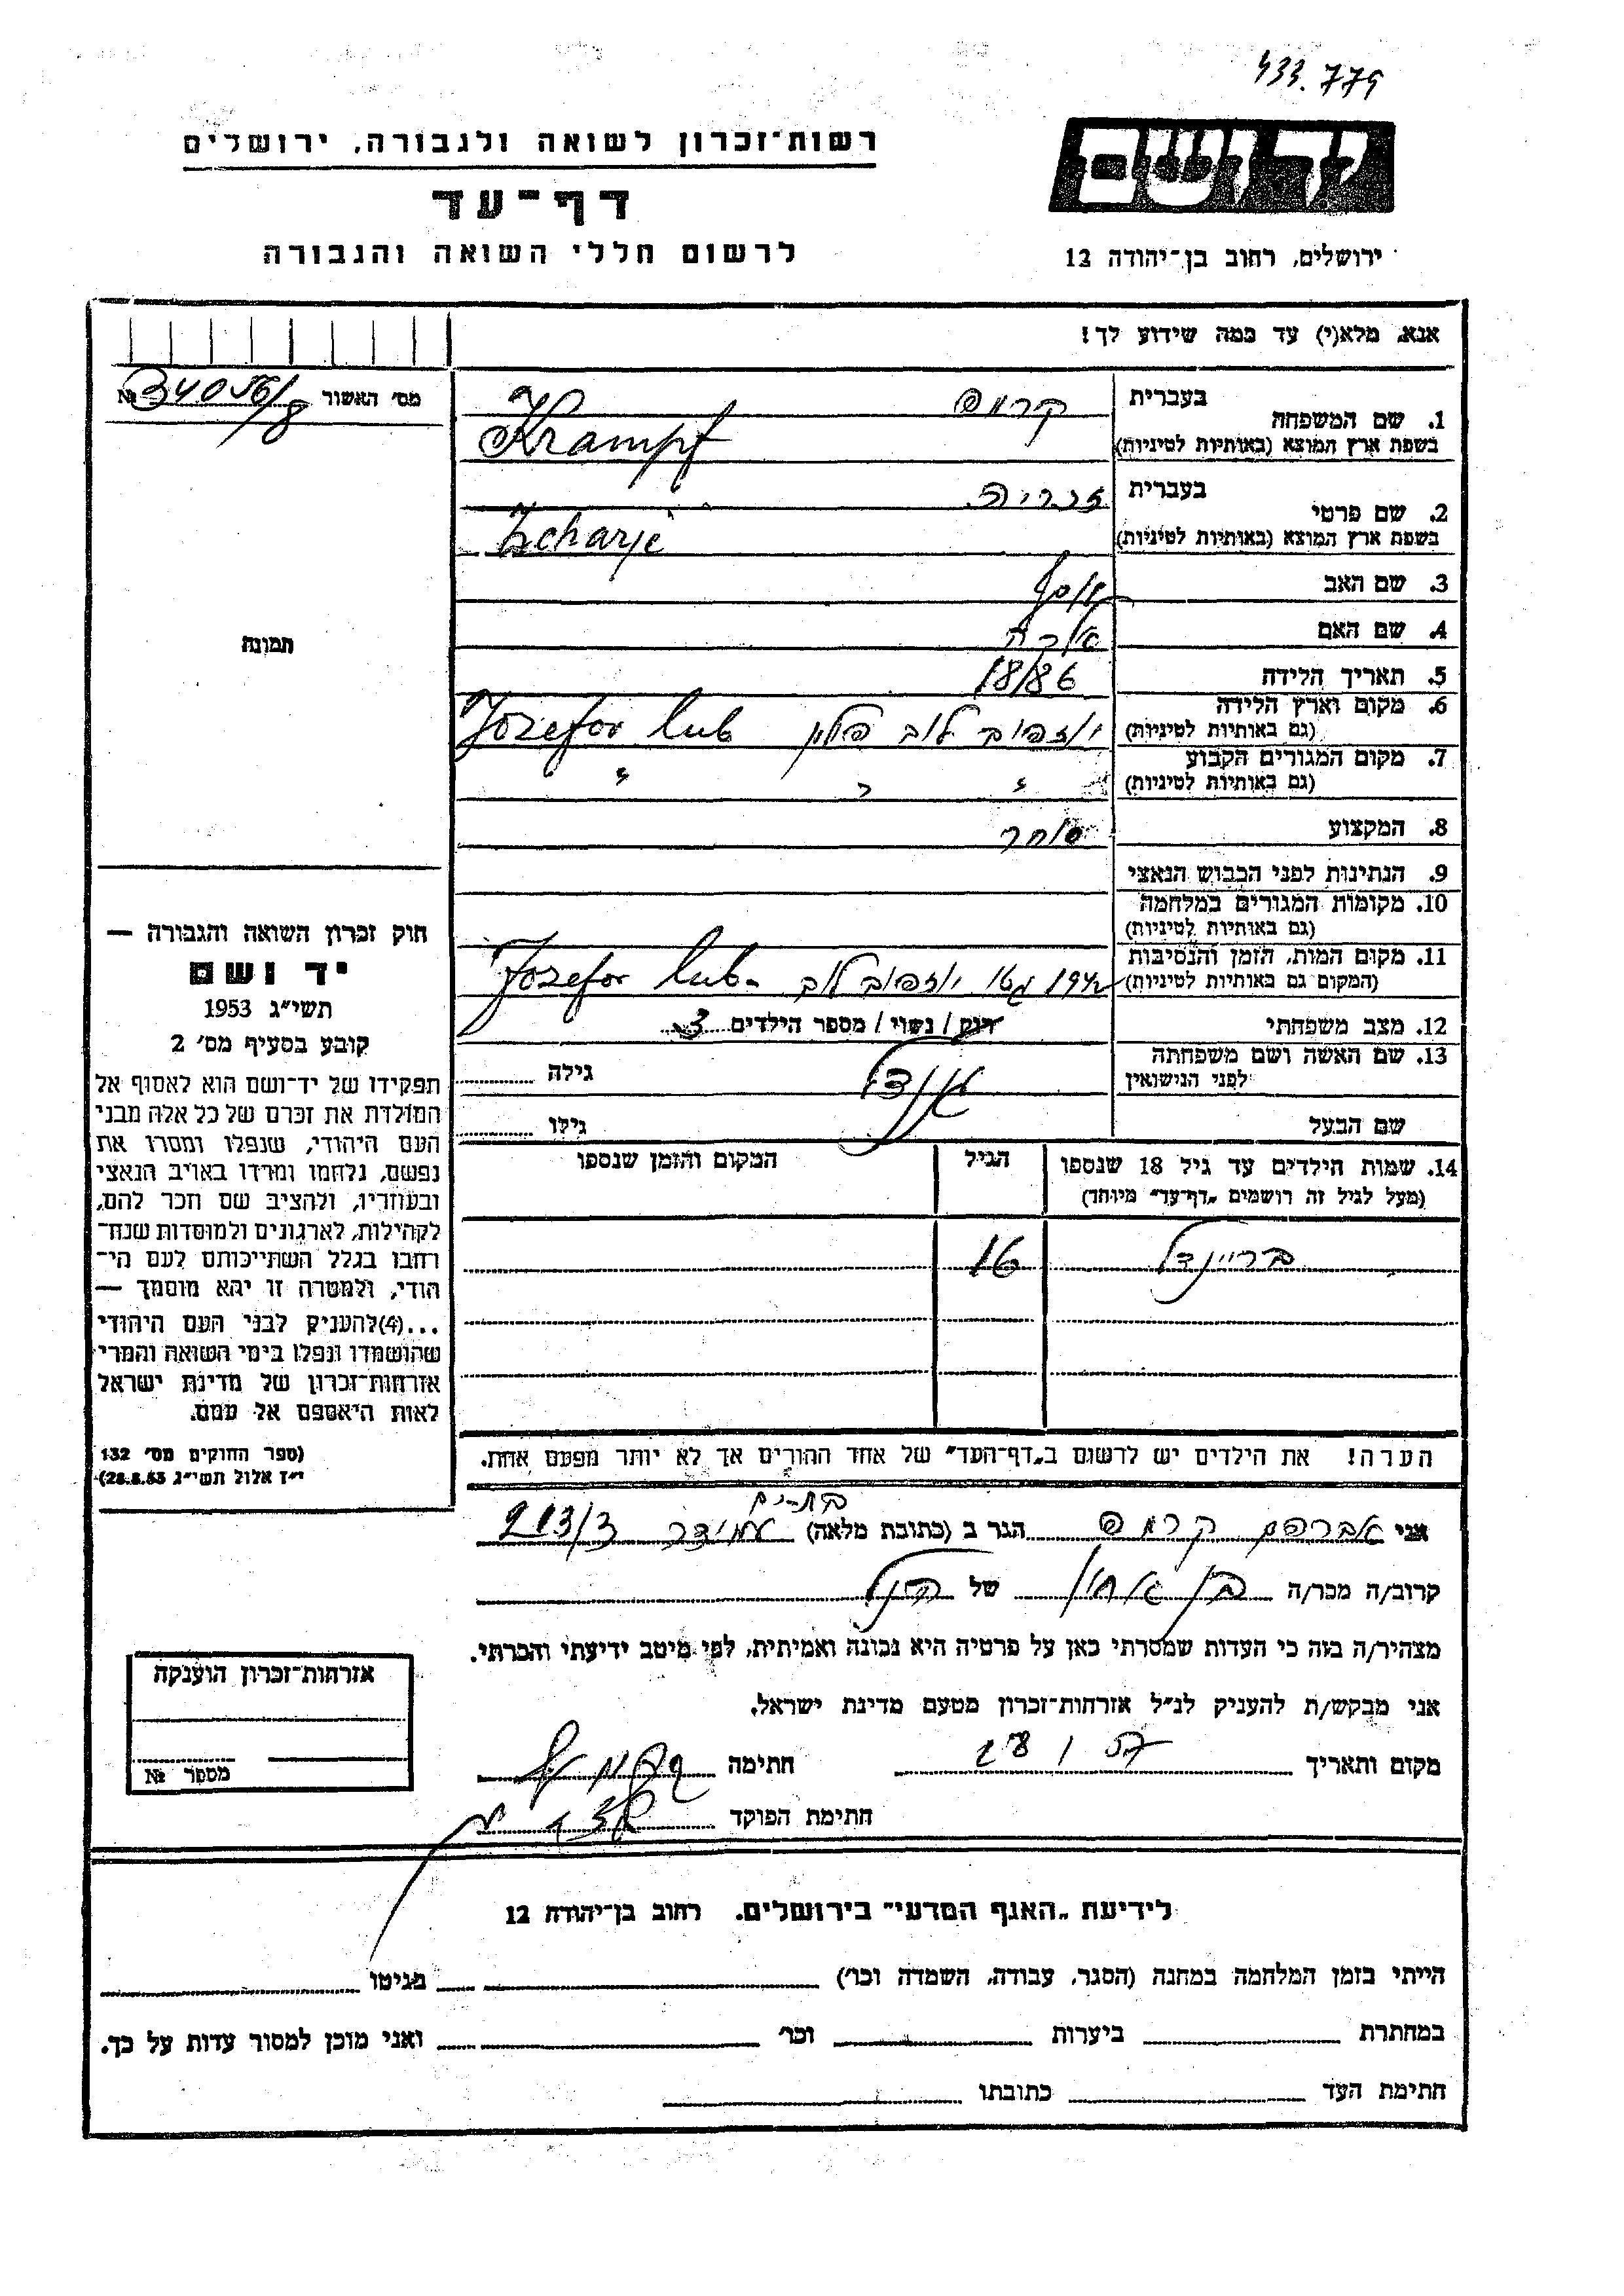 433.779
יד ושם
רשות־זכרון לשואה ולגבורה, ירושלים
דף־עד
לרשום חללי השואה והגבורה
ירושלים, רחוב בן־יהודה 12
אנא, מלא(י) עד כמה שידוע לך!
מס׳ האשור 34056/8 №
תמונה
חוק זכרון השואה והגבורה —
יד ושם
תשי״ג 1953
קובע בסעיף מס׳ 2
תפקידו של יד־ושם הוא לאסוף אל
המולדת את זכרם של כל אלה מבני
העם היהודי, שנפלו ומסרו את
נפשם, נלחמו ומרדו באויב הנאצי
ובעוזריו, ולהציב שם וזכר להם,
לקהילות, לארגונים ולמוסדות שנח־
רבו בגלל השתייכותם לעם הי־
הודי, ולמטרה זו יהא מוסמך —
...(4)להעניק לבני העם היהודי
שהושמדו ונפלו בימי השואה והמרי
אזרחות־זכרון של מדינת ישראל
לאות היאספם אל עמם.
(ספר החוקים מס׳ 132
י״ז אלול תשי״ג 28.8.53)
בעברית קרמפ
1. שם המשפחה
בשפת ארץ המוצא (באותיות לטיניות) Krampf
בעברית זכריה
2. שם פרטי
בשפת ארץ המוצא (באותיות לטיניות) Zcharje
3. שם האב יוסף
4. שם האם
5. תאריך הלידה 18/86
6. מקום וארץ הלידה
(גם באותיות לטיניות) יוזפוב לוב פולין Jozefor lub
7. מקום המגורים הקבוע
(גם באותיות לטיניות) " " "
8. המקצוע סוחר
9. הנתינות לפני הכבוש הנאצי
10. מקומות המגורים במלחמה
(גם באותיות לטיניות)
11. מקום המות, הזמן והנסיבות
(המקום גם באותיות לטיניות) 1942 גטו יוזפוב לוב Jozefor lub-
12. מצב משפחתי רווק / נשוי / מספר הילדים 3
13. שם האשה ושם משפחתה
לפני הנישואין גילה
שם הבעל גילו
14. שמות הילדים עד גיל 18 שנספו הגיל המקום והזמן שנספו
(מעל לגיל זה רושמים „דף־עד״ מיוחד)
בריינדל 16
הערה! את הילדים יש לרשום ב„דף־העד״ של אחד ההורים אך לא יותר מפעם אחת.
בת-ים
אני אברהם קרמפ הגר ב (כתובת מלאה) עמידר 213/3
קרוב/ה מכר/ה בן אחיו של הנ״ל
מצהיר/ה בזה כי העדות שמסרתי כאן על פרטיה היא נכונה ואמיתית, לפי מיטב ידיעתי והכרתי.
אני מבקש/ת להעניק לנ״ל אזרחות־זכרון מטעם מדינת ישראל.
מקום ותאריך
חתימה
חתימת הפוקד
אזרחות־זכרון הוענקה
מספר №
לידיעת „האגף המדעי״ בירושלים. רחוב בן־יהודה 12
הייתי בזמן המלחמה במחנה (הסגר, עבודה, השמדה וכו׳) בגיטו
במחתרת ביערות וכו׳ ואני מוכן למסור עדות על כך.
חתימת העד כתובתו